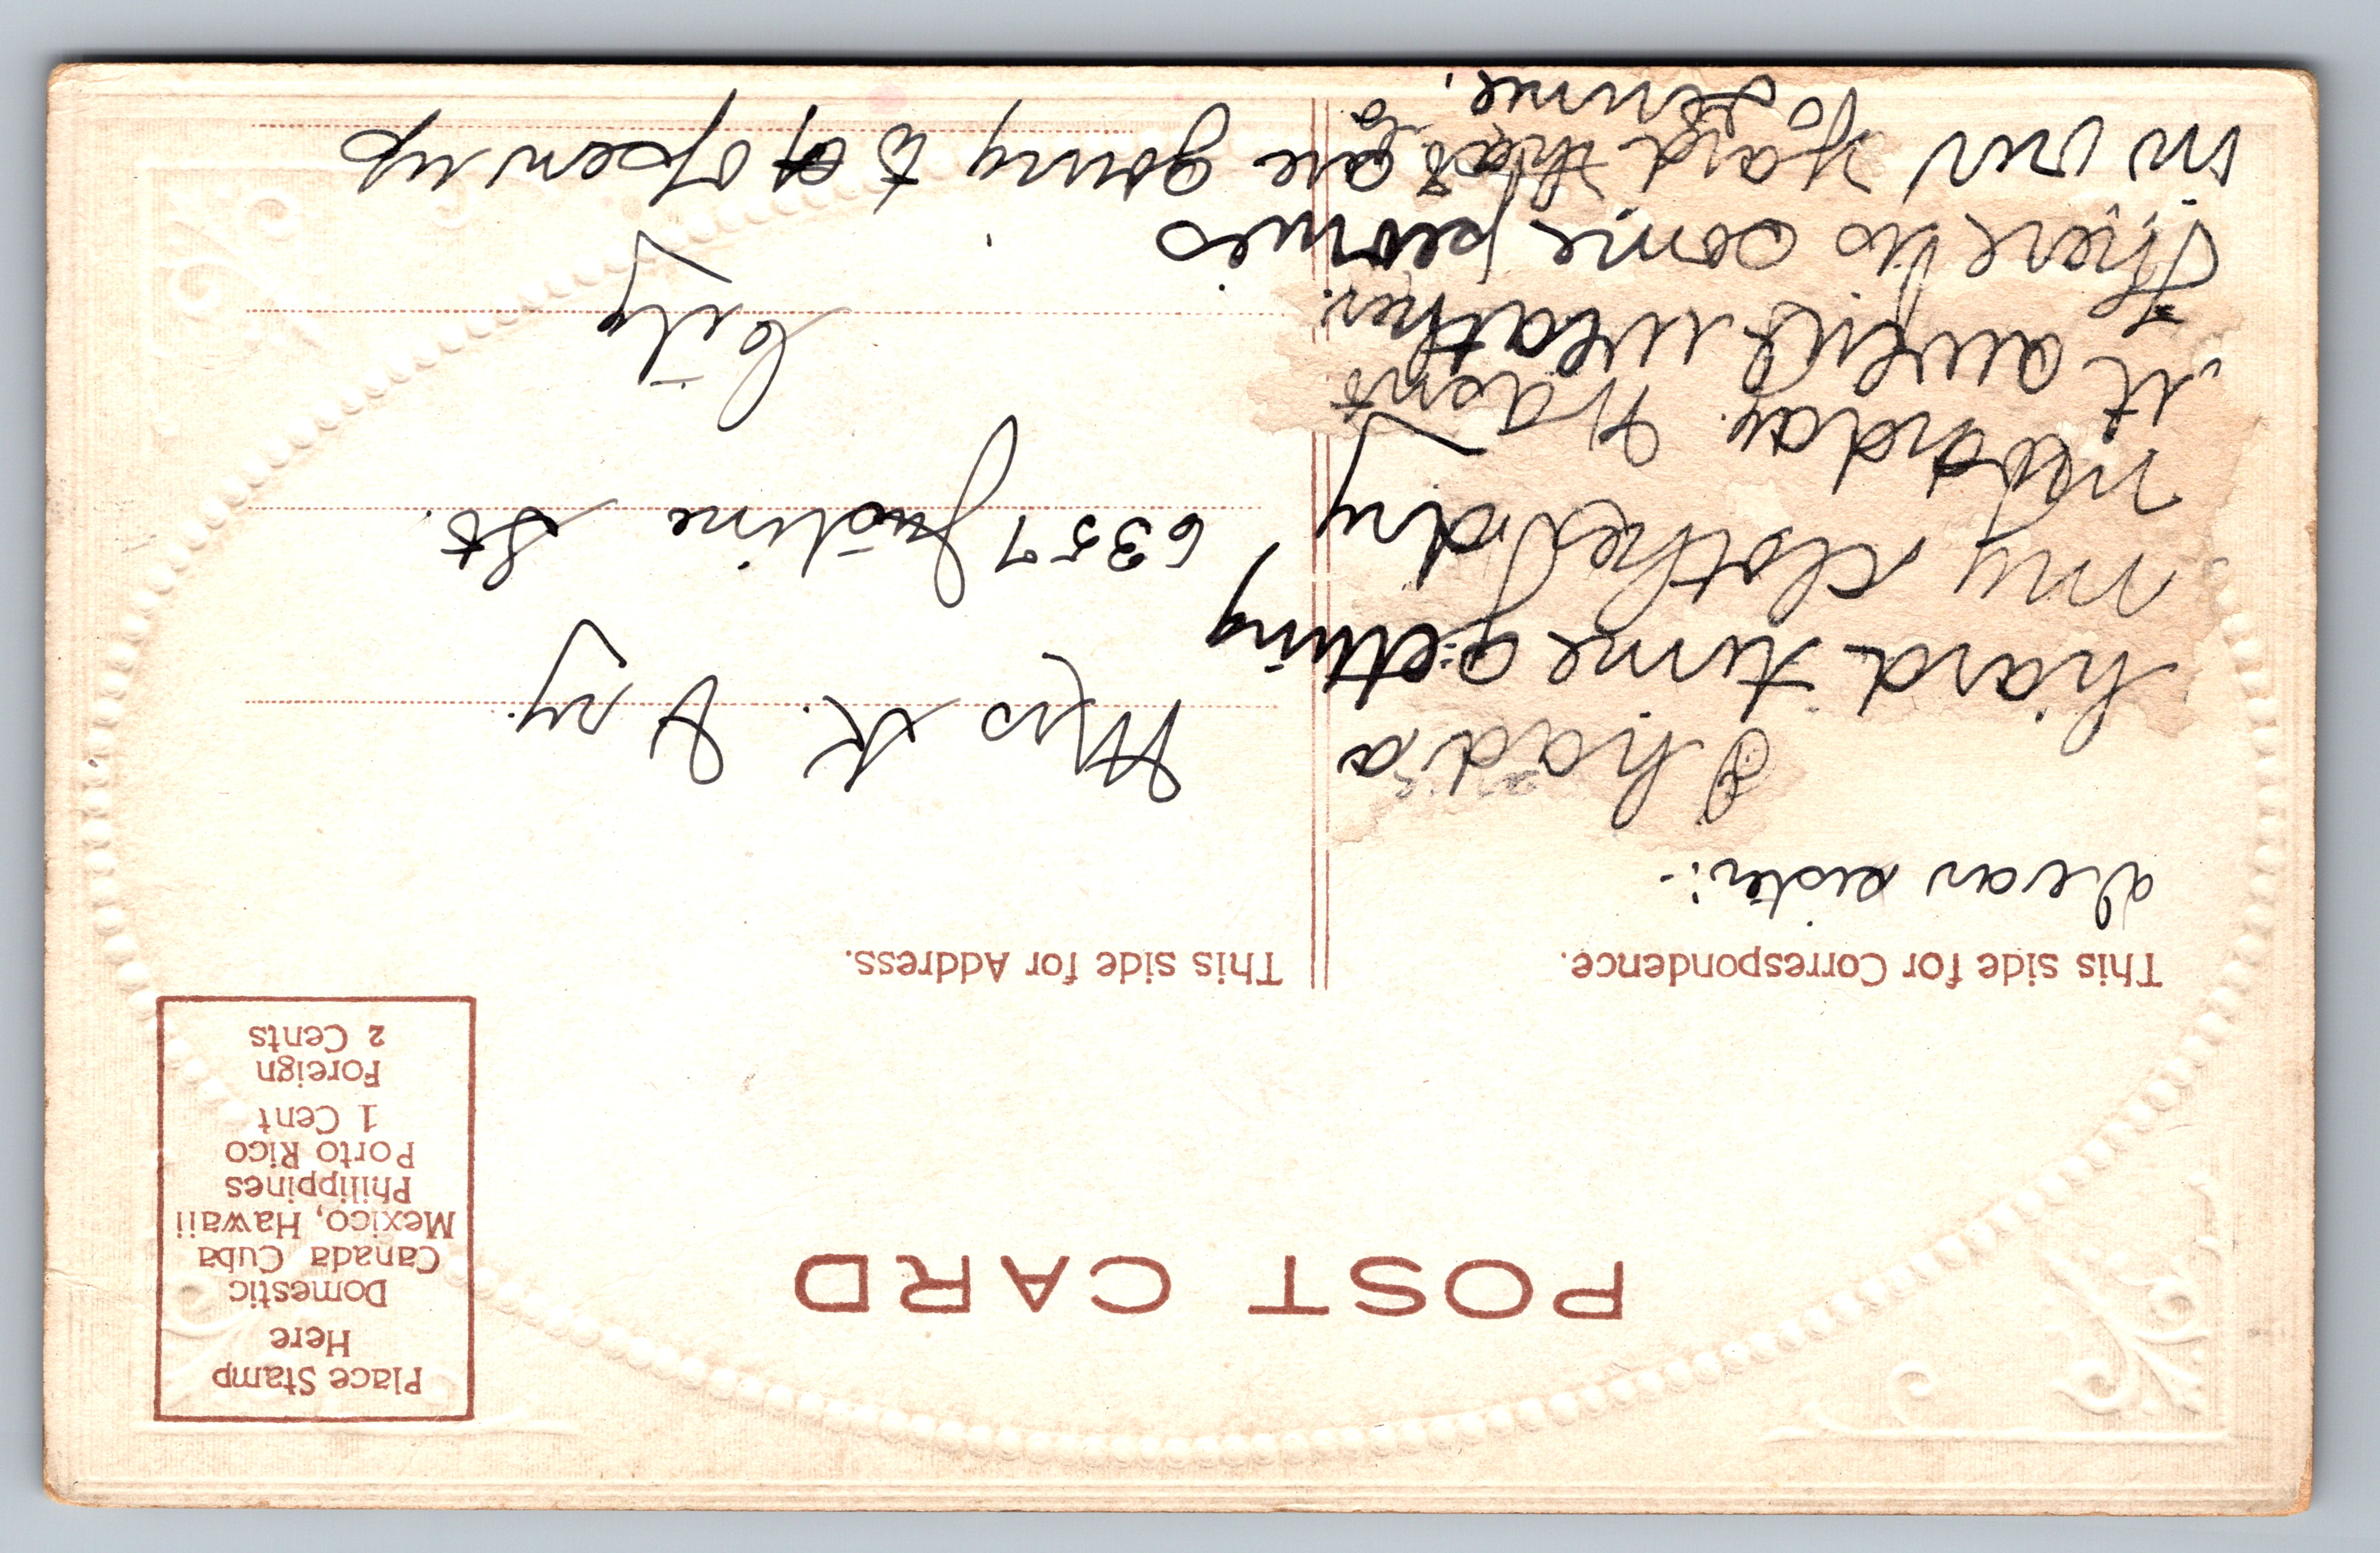 POST CARD
Place Stamp
Here
Domestic
Canada Cuba
Mexico, Hawaii
Philippines
Porto Rico
1 Cent
Foreign
2 Cents
This side for Correspondence.
Dear sister:-
I had a
hard time getting
my clothes dry
monday. Wasn't
it awful weather.
There is some peonies
in our yard that are going to open up
Jennie.
This side for Address.
Mrs K. Vry.
6357 Judine St.
City